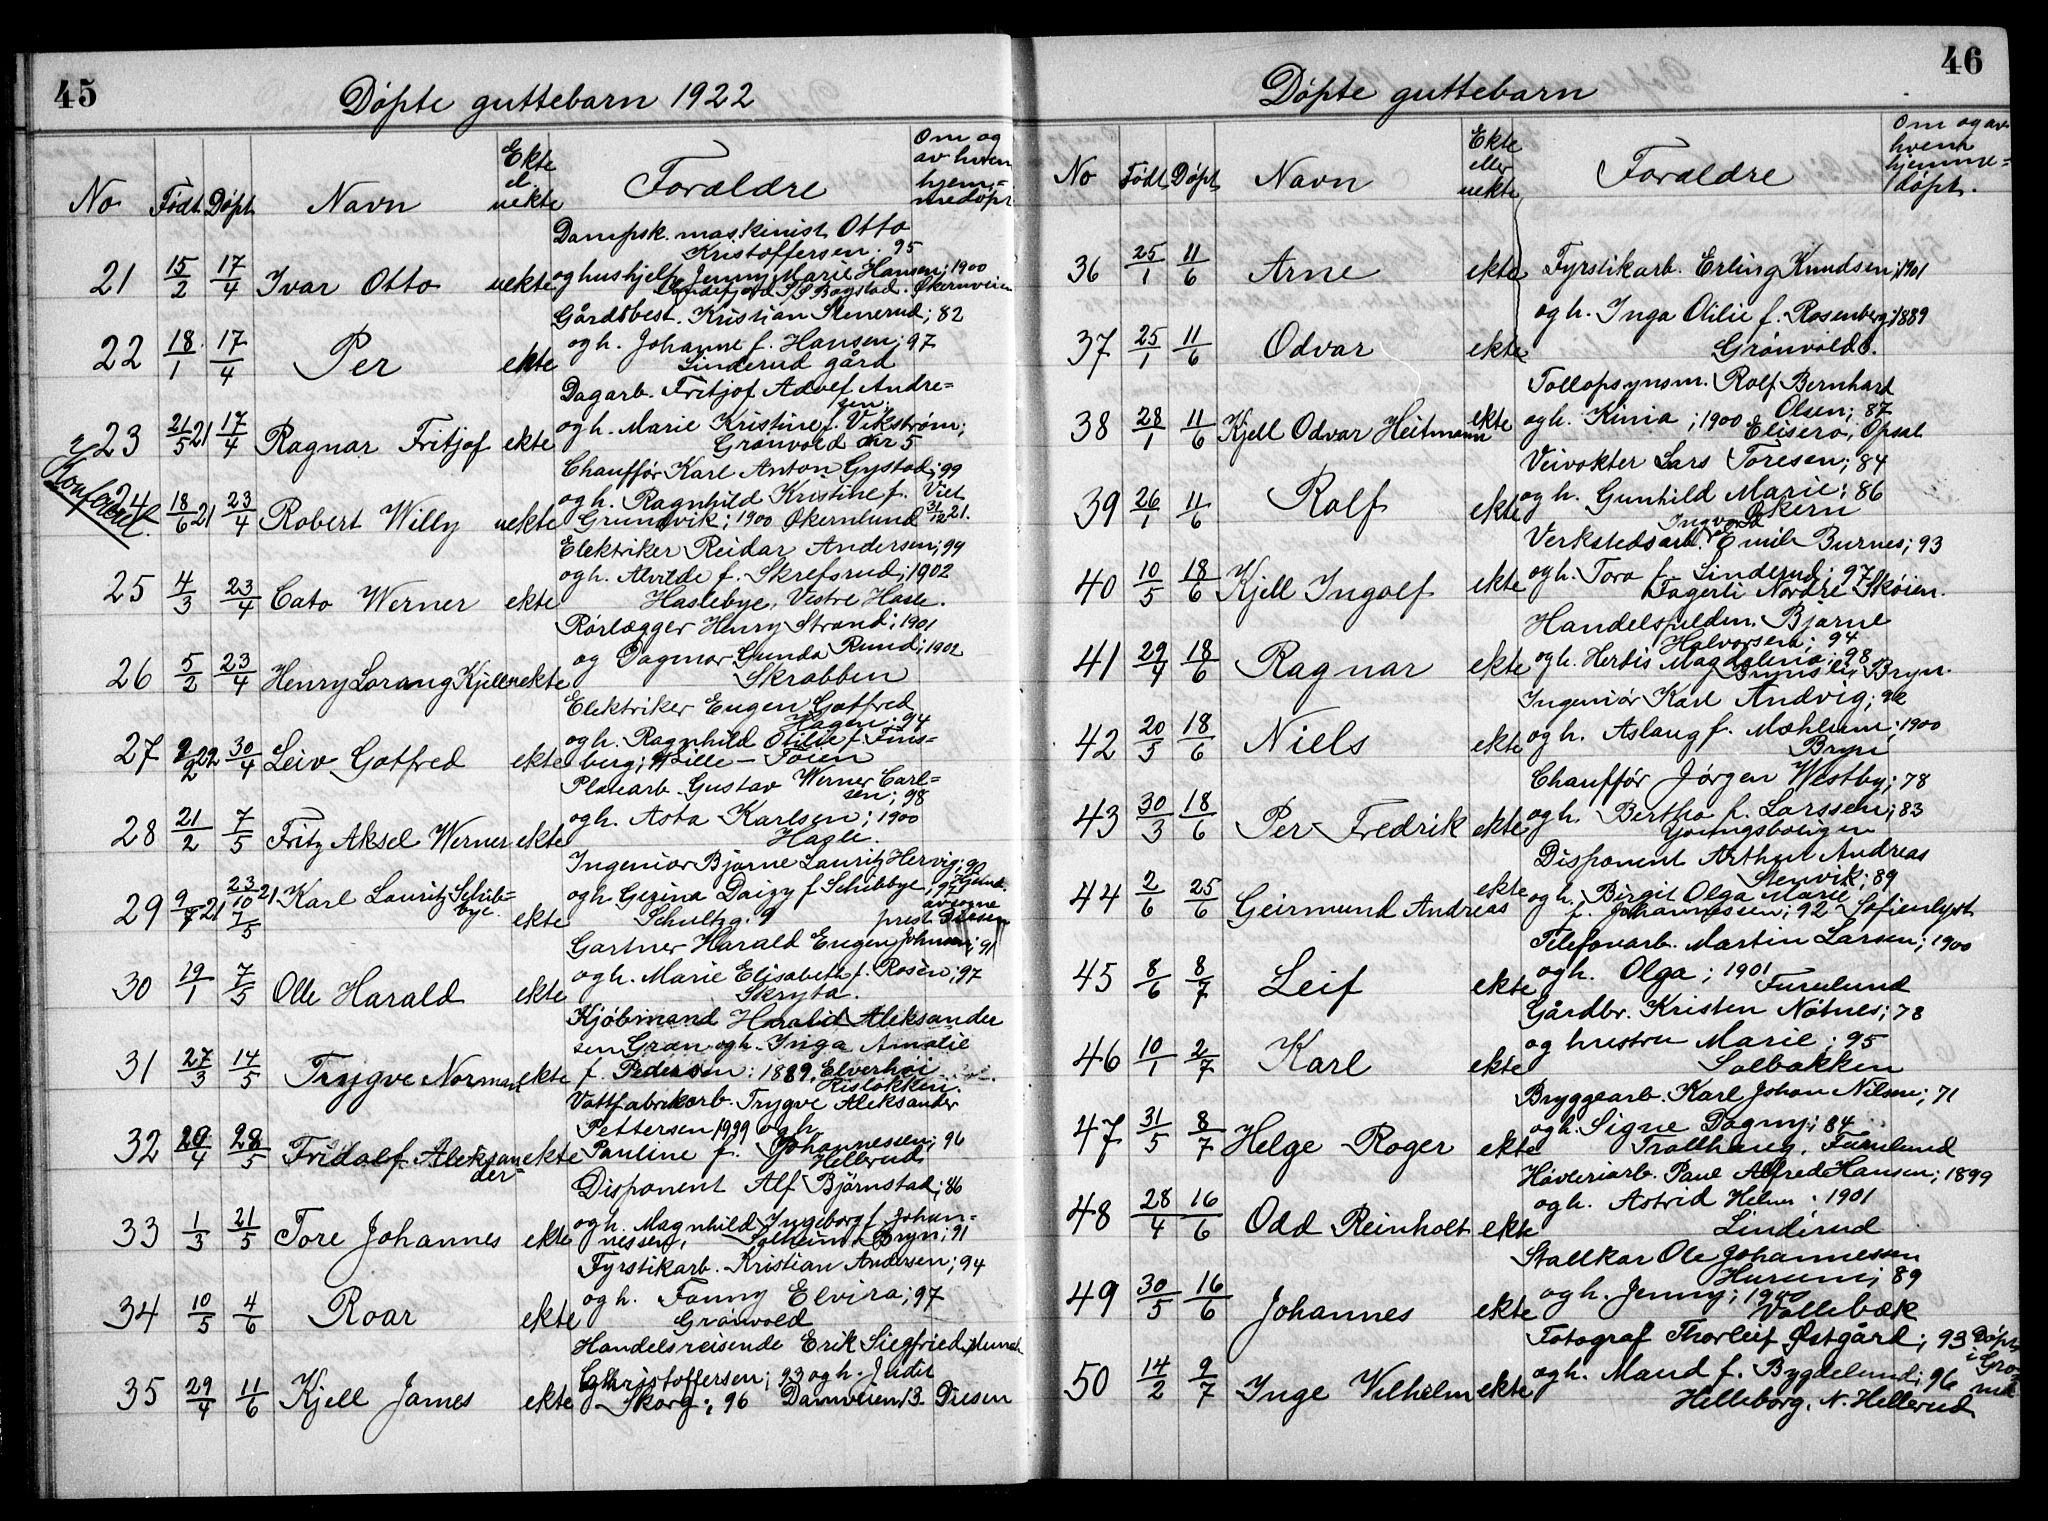 45
Døpte guttebarn 1922
No Født Døpt Navn Ekte el. uekte Forældre Om og av hvem hjem=medøpt
Dampsk. maskinist Otto
Kristoffersen. 95
21 15/2 17/4 Ivar Otto uekte og hushjelp Jenny Marie Hansen; 1900
Økernveien
Gårdsbest. Kristian Stenerud; 82
22 18/1 17/4 Per ekte og h. Johanne f. Hansen; 97
Linderud gård
Dagarb. Fritjof Adolf Andre=
sen;
23 21/5 21 17/4 Ragnar Fritjof ekte og h. Marie Kristine f. Vikstrøm;
Grønvold nr 5
Chauffør Karl Anton Gystad; 99
24 18/6 21 23/4 Robert Willy uekte og h. Ragnhild Kristine f. Viet
Grundvik; 1900 Økernlund 31/12 21.
Elektriker Reidar Andersen; 99
25 4/3 23/4 Cato Werner ekte og h. Alvilde f. Skrefsrud; 1902
Haslebye, Vestre Hasle.
Rørlægger Henry Strand; 1901
26 5/2 23/4 Henry Lorang Kjell uekte og Dagmar Gunda Ruud; 1902
Skrabben
Elektriker Eugen Gotfred
Hagen; 94
27 9/2 22 30/4 Leiv Gotfred ekte og h. Ragnhild Otilie f. Fins=
berg; Lille-Tøien
Plankarb. Gustav Werner Carl=
sen; 98
28 21/2 7/5 Fritz Aksel Werner ekte og h. Asta Karlsen; 1900
Hasle.
Ingeniør Bjarne Lauritz Hervig; 90
29 9/7 21 23/10 21 7/5 Karl Lauritz Schib=bye ekte og h. Gezina Daizy f. Schibbye; 97 Hjem
Schultzg. 9 prest Diesen
Gartner Harald Eugen Johnsen; 91
30 19/1 7/5 Olle Harald ekte og h. Marie Elisabeth f. Rosèn; 97
Skryta.
Kjøbmand Harald Aleksander
sen Gran og h. Inga Amalie
31 27/3 14/5 Trygve Norman ekte f. Pedersen: 1889. Elverhøi
Risløkken.
Vattfabrikarb. Trygve Aleksander
Pettersen 1999 og h.
32 29/4 28/5 Fridolf Aleksander ekte Pauline f. Johannessen; 96
Hellerud
Disponent Alf Bjørnstad; 86
33 1/3 21/5 Tore Johannes ekte og h. Magnhild Ingeborg f. Johan=
nessen, Solheim Bryn; 91
Fyrstikarb. Kristian Andersen; 94
34 10/5 4/6 Roar ekte og h. Fanny Elvira; 97
Grønvold
Handelsreisende Erik Siegfried Munch
Christoffersen; 93 og h. Judit
35 29/4 11/6 Kjell James ekte Skorg; 96 Damveien 13 Diesen
46
Døpte guttebarn
No Født Døpt Navn Ekte eller uekte Forældre Om og av hvem hjemme=døpt.
36 25/1 11/6 Arne ekte Fyrstikarb. Erling Knudsen; 1901
og h. Inga Otilie f. Rosenberg; 1889
37 25/1 11/6 Odvar ekte Grønvold 3.
Tollopsynsm. Rolf Bernhard
Olsen; 87
38 28/1 11/6 Kjell Odvar Heitmann ekte og h. Kinia; 1900 Elisero, Opsal
Veivokter Lars Toresen; 84
39 26/1 11/6 Rolf ekte og h. Gunhild Marie; 86
Økern
Verkstedsarb. Ingvard Emil Burnes; 93
40 10/5 18/6 Kjell Ingolf ekte og h. Tora f. Linderud; 97
Fagerli Nordre Skøien.
Handelsfuldm. Bjarne
Halvorsen; 94
41 29/4 18/6 Ragnar ekte og h. Herdis Magdalena; 98
Brynsli, Bryn.
Ingeniør Karl Andvig; 92
42 20/5 18/6 Niels ekte og h. Aslaug f. Mæhlum; 1900
Bryn
Chauffør Jørgen Westby; 78
43 30/3 18/6 Per Fredrik ekte og h. Bertha f. Larssen; 83
Youngsboligen
Disponent Arthur Andreas
Stenvik; 89
44 2/6 25/6 Geirmund Andreas ekte og h. Birgit Olga Marie
f. Johannessen; 92 Sofienlyst
Telefonarb. Martin Larsen; 1900
45 8/6 8/7 Leif ekte og h. Olga; 1901 Furulund
Gårdbr. Kristen Nøtnes; 78
46 10/1 2/7 Karl ekte og hustru Marie; 95
Solbakken
Bryggearb. Karl Johan Nilsen; 71
47 31/5 8/7 Helge Roger ekte og h. Signe Dagny; 84
Trollhaug, Furulund
Høvleriarb. Paul Alfred Hansen; 1899
48 28/4 16/6 Odd Reinholt ekte og h. Astrid Helm. 1901
Linderud
Stallkar Ole Johannessen
Hurum; 89
49 30/5 16/6 Johannes ekte og h. Jenny; 1900
Vollebæk
Fotograf Thorleif Østgård; 93 Døpt
50 14/2 9/7 Inge Vilhelm ekte og h. Maud f. Bygdelund; 96 i Gro=rud
Helleborg, N. Hellerud